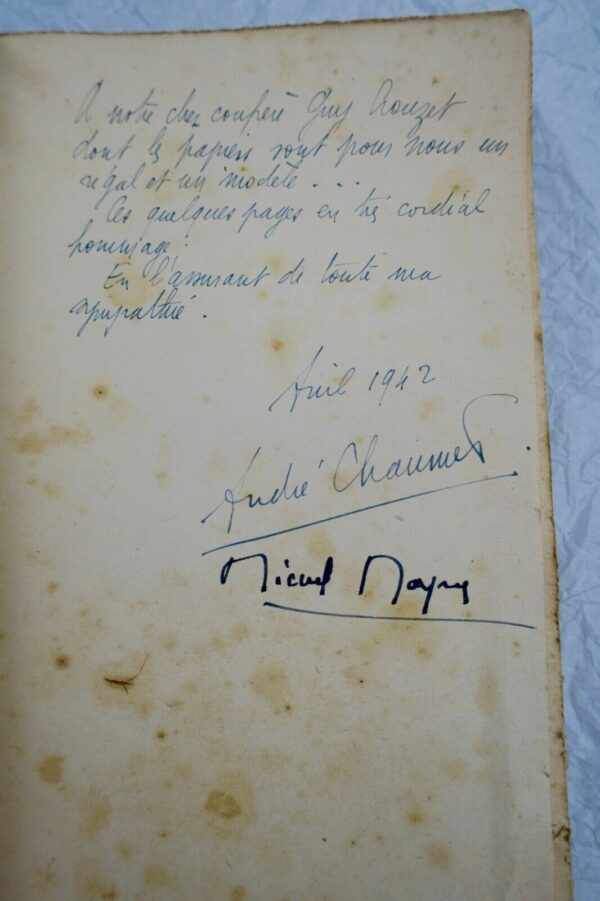 A notre cher confrère Guy Crouzet
dont les papiers sont pour nous un
régal et un modèle ...
Ces quelques pages en très cordial
hommage :
En l'assurant de toute ma
sympathie .
Avril 1942
André Chaumet .